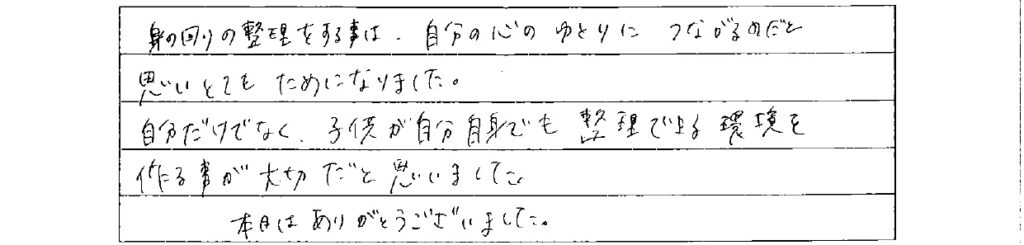 身の回りの整理をする事は、自分の心のゆとりにつながるのだと
思いとてもためになりました。
自分だけでなく、子供が自分自身でも整理で出る環境を
作る事が大切だと思いました。
本日はありがとうございました。